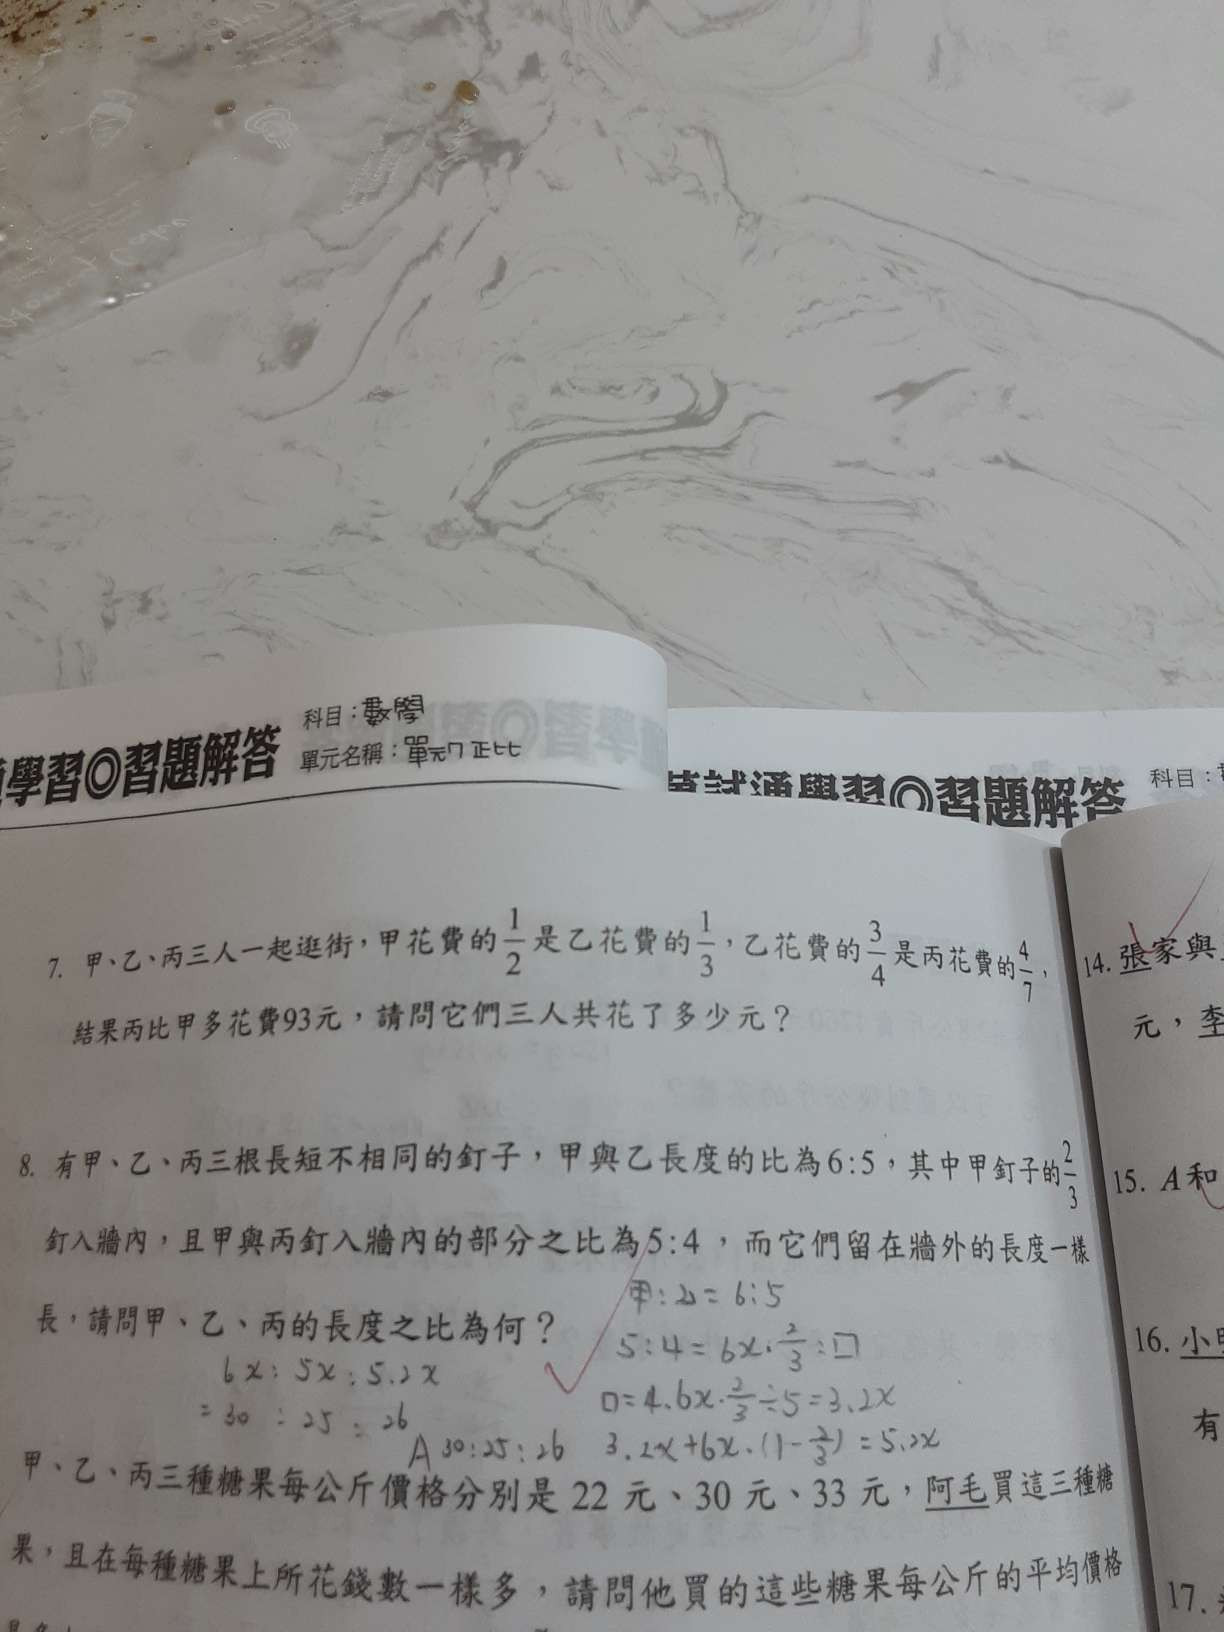 學習◎習題解答
科目：數學
單元名稱：單元7 正比
試通學習◎習題解答
科目：
7. 甲、乙、丙三人一起逛街，甲花費的1/2是乙花費的1/3，乙花費的3/4是丙花費的4/7，
結果丙比甲多花費93元，請問它們三人共花了多少元？
8. 有甲、乙、丙三根長短不相同的釘子，甲與乙長度的比為6:5，其中甲釘子的2/3
釘入牆內，且甲與丙釘入牆內的部分之比為5:4，而它們留在牆外的長度一樣
長，請問甲、乙、丙的長度之比為何？
甲:乙=6:5
5:4=6x·2/3:□
□=4.6x·2/3÷5=3.2x
3.2x+6x·(1-2/3)=5.2x
6x:5x:5.2x
=30:25:26
A 30:25:26
甲、乙、丙三種糖果每公斤價格分別是 22 元、30 元、33 元，阿毛買這三種糖
果，且在每種糖果上所花錢數一樣多，請問他買的這些糖果每公斤的平均價格
14. 張家與
元，李
15. A和
16. 小
有
17.